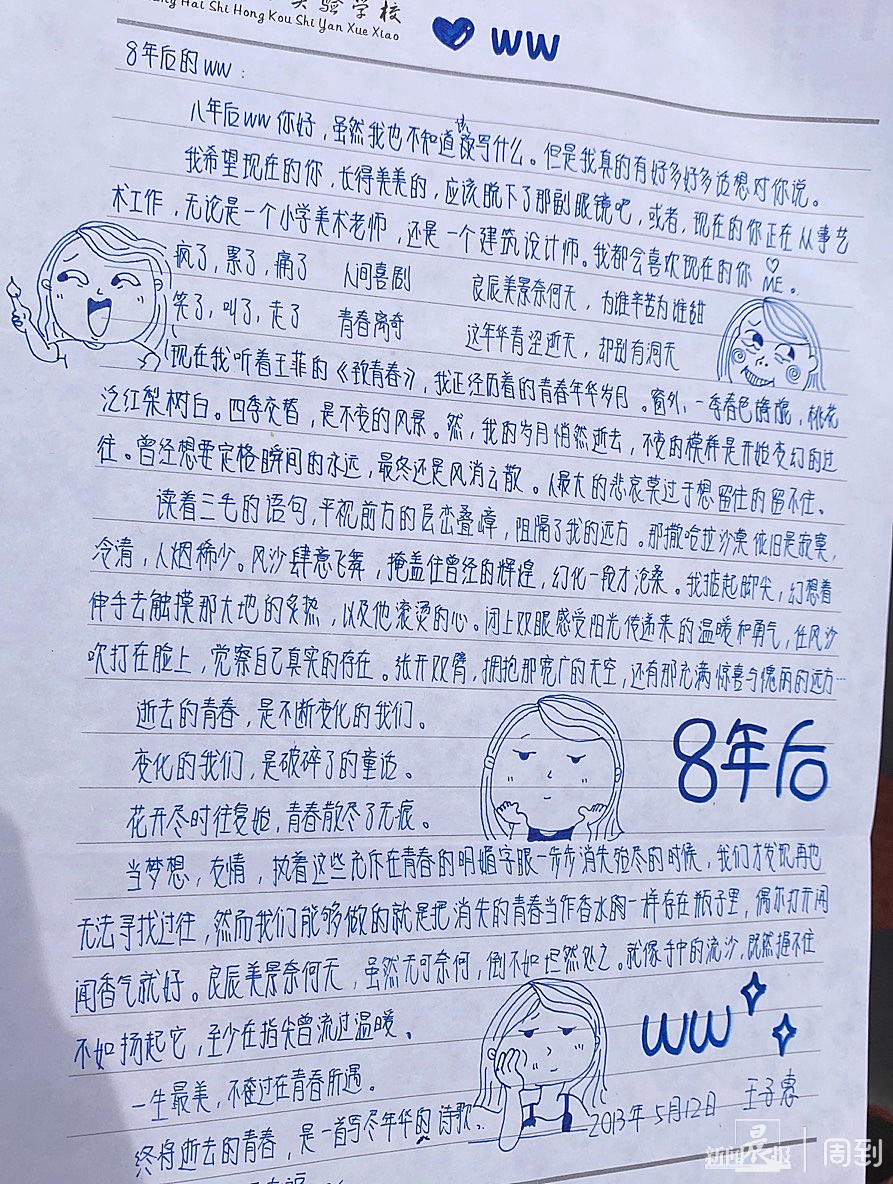 实验学校
Hai Shi Hong Kou Shi Yan Xue Xiao
WW
8年后的ww：
八年后ww你好，虽然我也不知道该写什么。但是我真的有好多好多话想对你说。
我希望现在的你，长得美美的，应该脱下了那副眼镜吧，或者，现在的你正在从事艺
术工作，无论是一个小学美术老师，还是一个建筑设计师。我都会喜欢现在的你 ME。
疯了，累了，痛了 人间喜剧 良辰美景奈何天，为谁辛苦为谁甜
笑了，叫了，走了 青春离奇 这年华青涩逝去，却别有洞天
现在我听着王菲的《致青春》，我正经历着的青春年华岁月。窗外，一季春色旖旎，桃花
泛红梨树白。四季交替，是不变的风景。然，我的岁月悄然逝去，不变的模样是开始变幻的过
往。曾经想要定格瞬间的永远，最终还是风消云散。人最大的悲哀莫过于想留住的留不住。
读着三毛的语句，平视前方的层峦叠嶂，阻隔了我的远方。那撒哈拉沙漠依旧是寂寞，
冷清，人烟稀少。风沙肆意飞舞，掩盖住曾经的辉煌，幻化一段才沧桑。我掂起脚尖，幻想着
伸手去触摸那大地的炙热，以及他滚烫的心。闭上双眼感受阳光传递来的温暖和勇气，任风沙
吹打在脸上，觉察自己真实的存在。张开双臂，拥抱那宽广的天空，还有那充满惊喜与瑰丽的远方…
逝去的青春，是不断变化的我们。
变化的我们，是破碎了的童话。
花开尽时往复始，青春散尽了无痕。
8年后
当梦想，友情，执着这些充斥在青春的明媚字眼一步步消失殆尽的时候，我们才发现再也
无法寻找过往，然而我们能够做的就是把消失的青春当作香水的一样存在瓶子里，偶尔打开闻
闻香气就好。良辰美景奈何天，虽然无可奈何，倒不如坦然处之。就像手中的流沙，既然握不住
不如扬起它，至少在指尖曾流过温暖。
WW
一生最美，不过在青春所遇。
终将逝去的青春，是一首写尽年华的诗歌。
2013年5月12日 王子惠
新闻晨报 | 周到